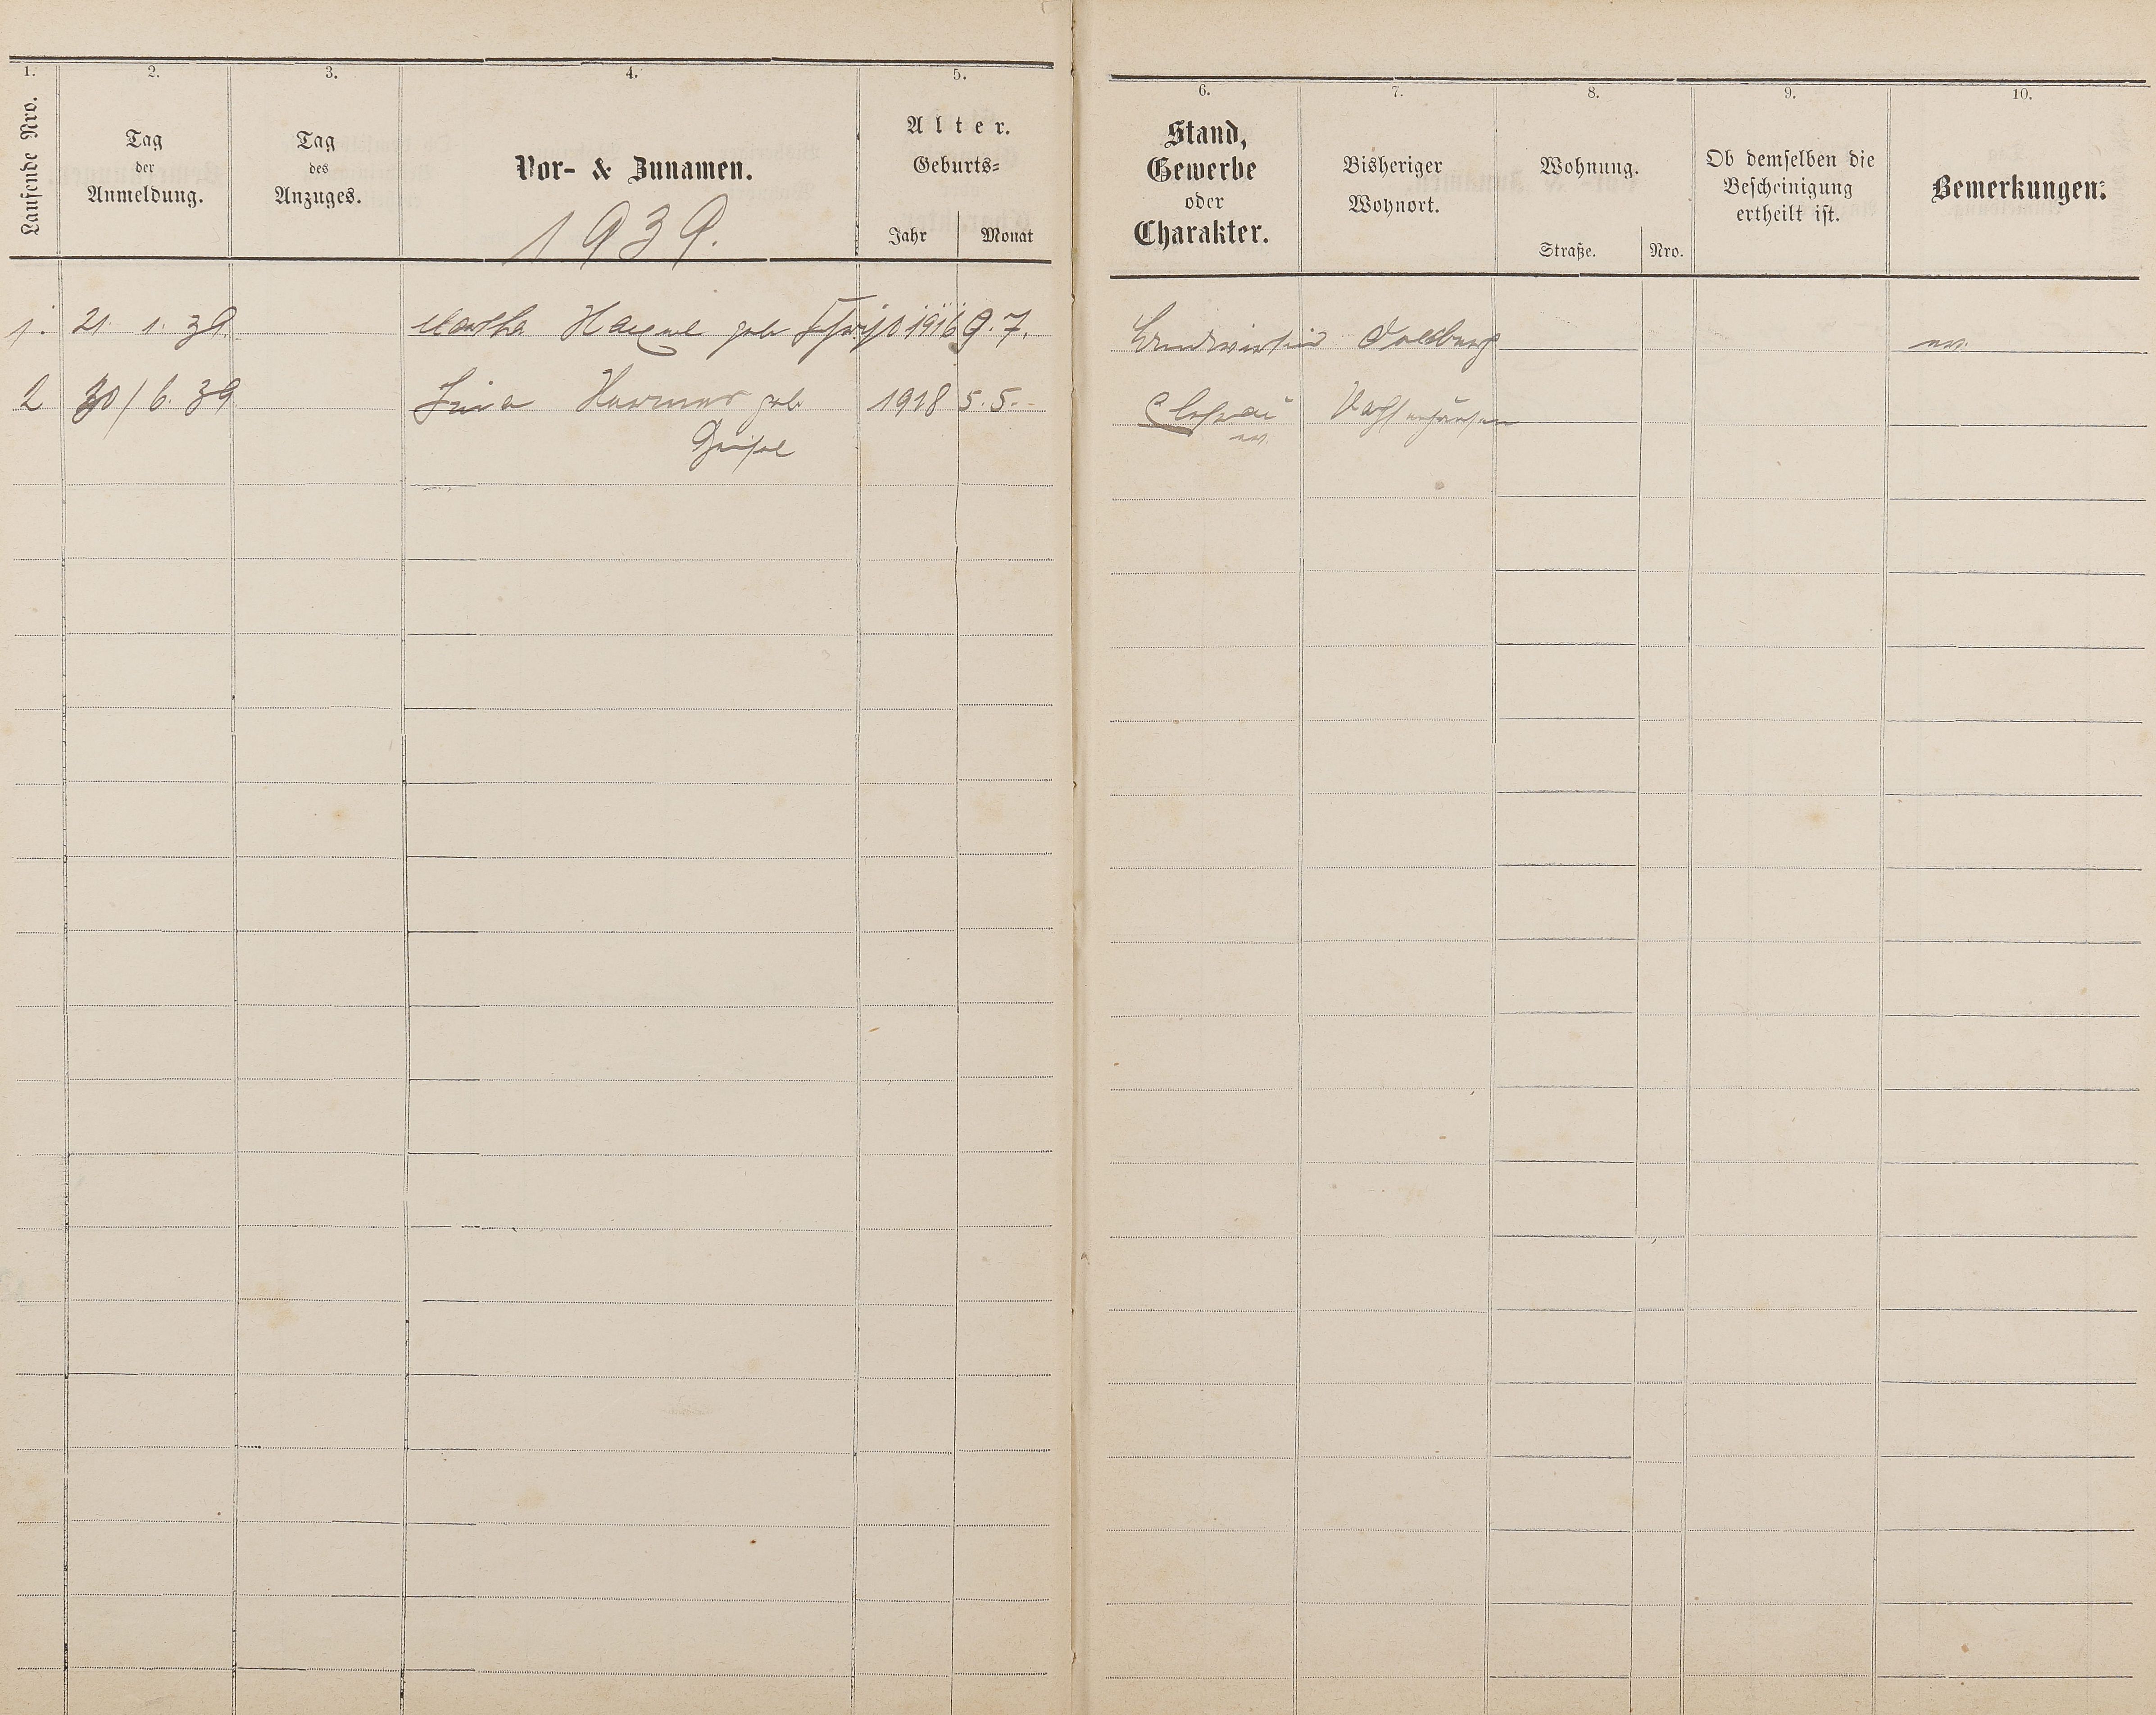 1.
2.
3.
4.
5.
Laufende Nro.
Tag
der
Anmeldung.
Tag
des
Anzuges.
Vor- & Zunamen.
1939.
Alter.
Geburts=
Jahr
Monat
6.
7.
8.
9.
10.
Stand,
Gewerbe
oder
Charakter.
Bisheriger
Wohnort.
Wohnung.
Straße.
Nro.
Ob demselben die
Bescheinigung
ertheilt ist.
Bemerkungen.
1. 21. 1. 39. Martha geb 1916 9.7. Landwirtin ev.
2 30/6. 39 geb 1918 5.5.
ev.